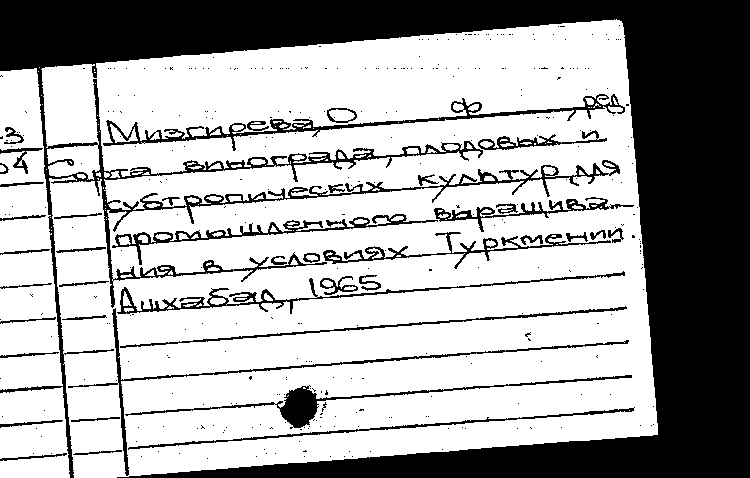 Мизгирева, О Ф , ред.
3
04 Сорта винограда, плодовых и
субтропических культур для
промышленного выращива-
ния в условиях Туркмении.
Ашхабад, 1965.